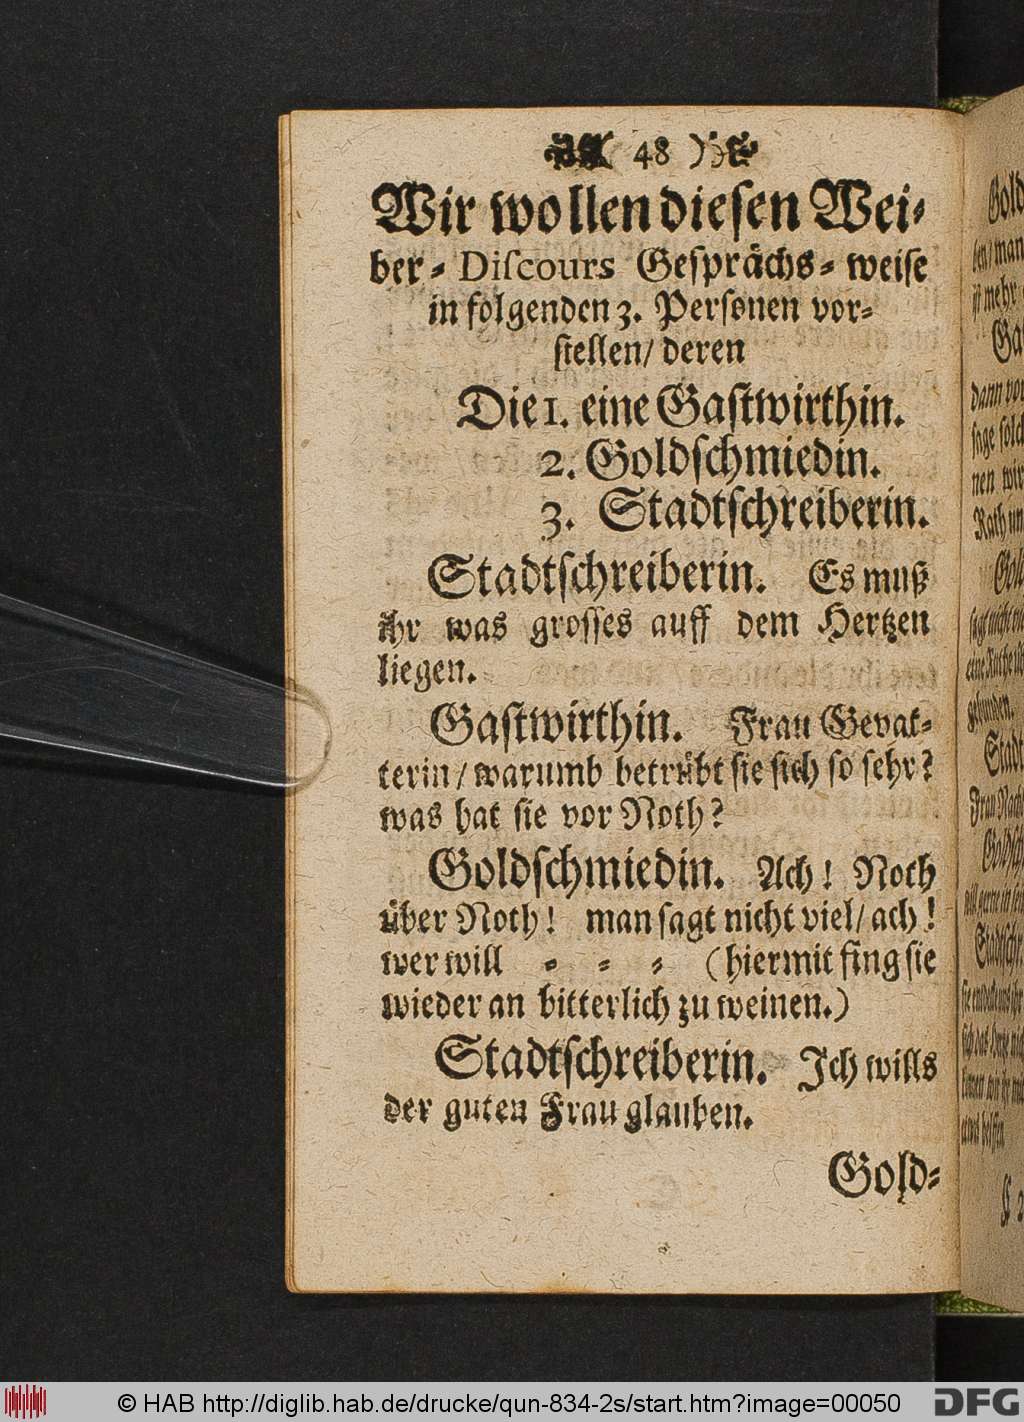 ( 48 )
Wir wollen diesen Wei-
ber-Discours Gesprächs-weise
in folgenden 3. Personen vor-
stellen/ deren
Die 1. eine Gastwirthin.
2. Goldschmiedin.
3. Stadtschreiberin.
Stadtschreiberin. Es muß
ihr was grosses auff dem Hertzen
liegen.
Gastwirthin. Frau Gevat-
terin/ warumb betrübt sie sich so sehr?
was hat sie vor Noth?
Goldschmiedin. Ach! Noth
über Noth! man sagt nicht viel/ ach!
wer will - - - (hiermit fing sie
wieder an bitterlich zu weinen.)
Stadtschreiberin. Ich wills
der guten Frau glauben.
Gold-
© HAB http://diglib.hab.de/drucke/qun-834-2s/start.htm?image=00050
DFG